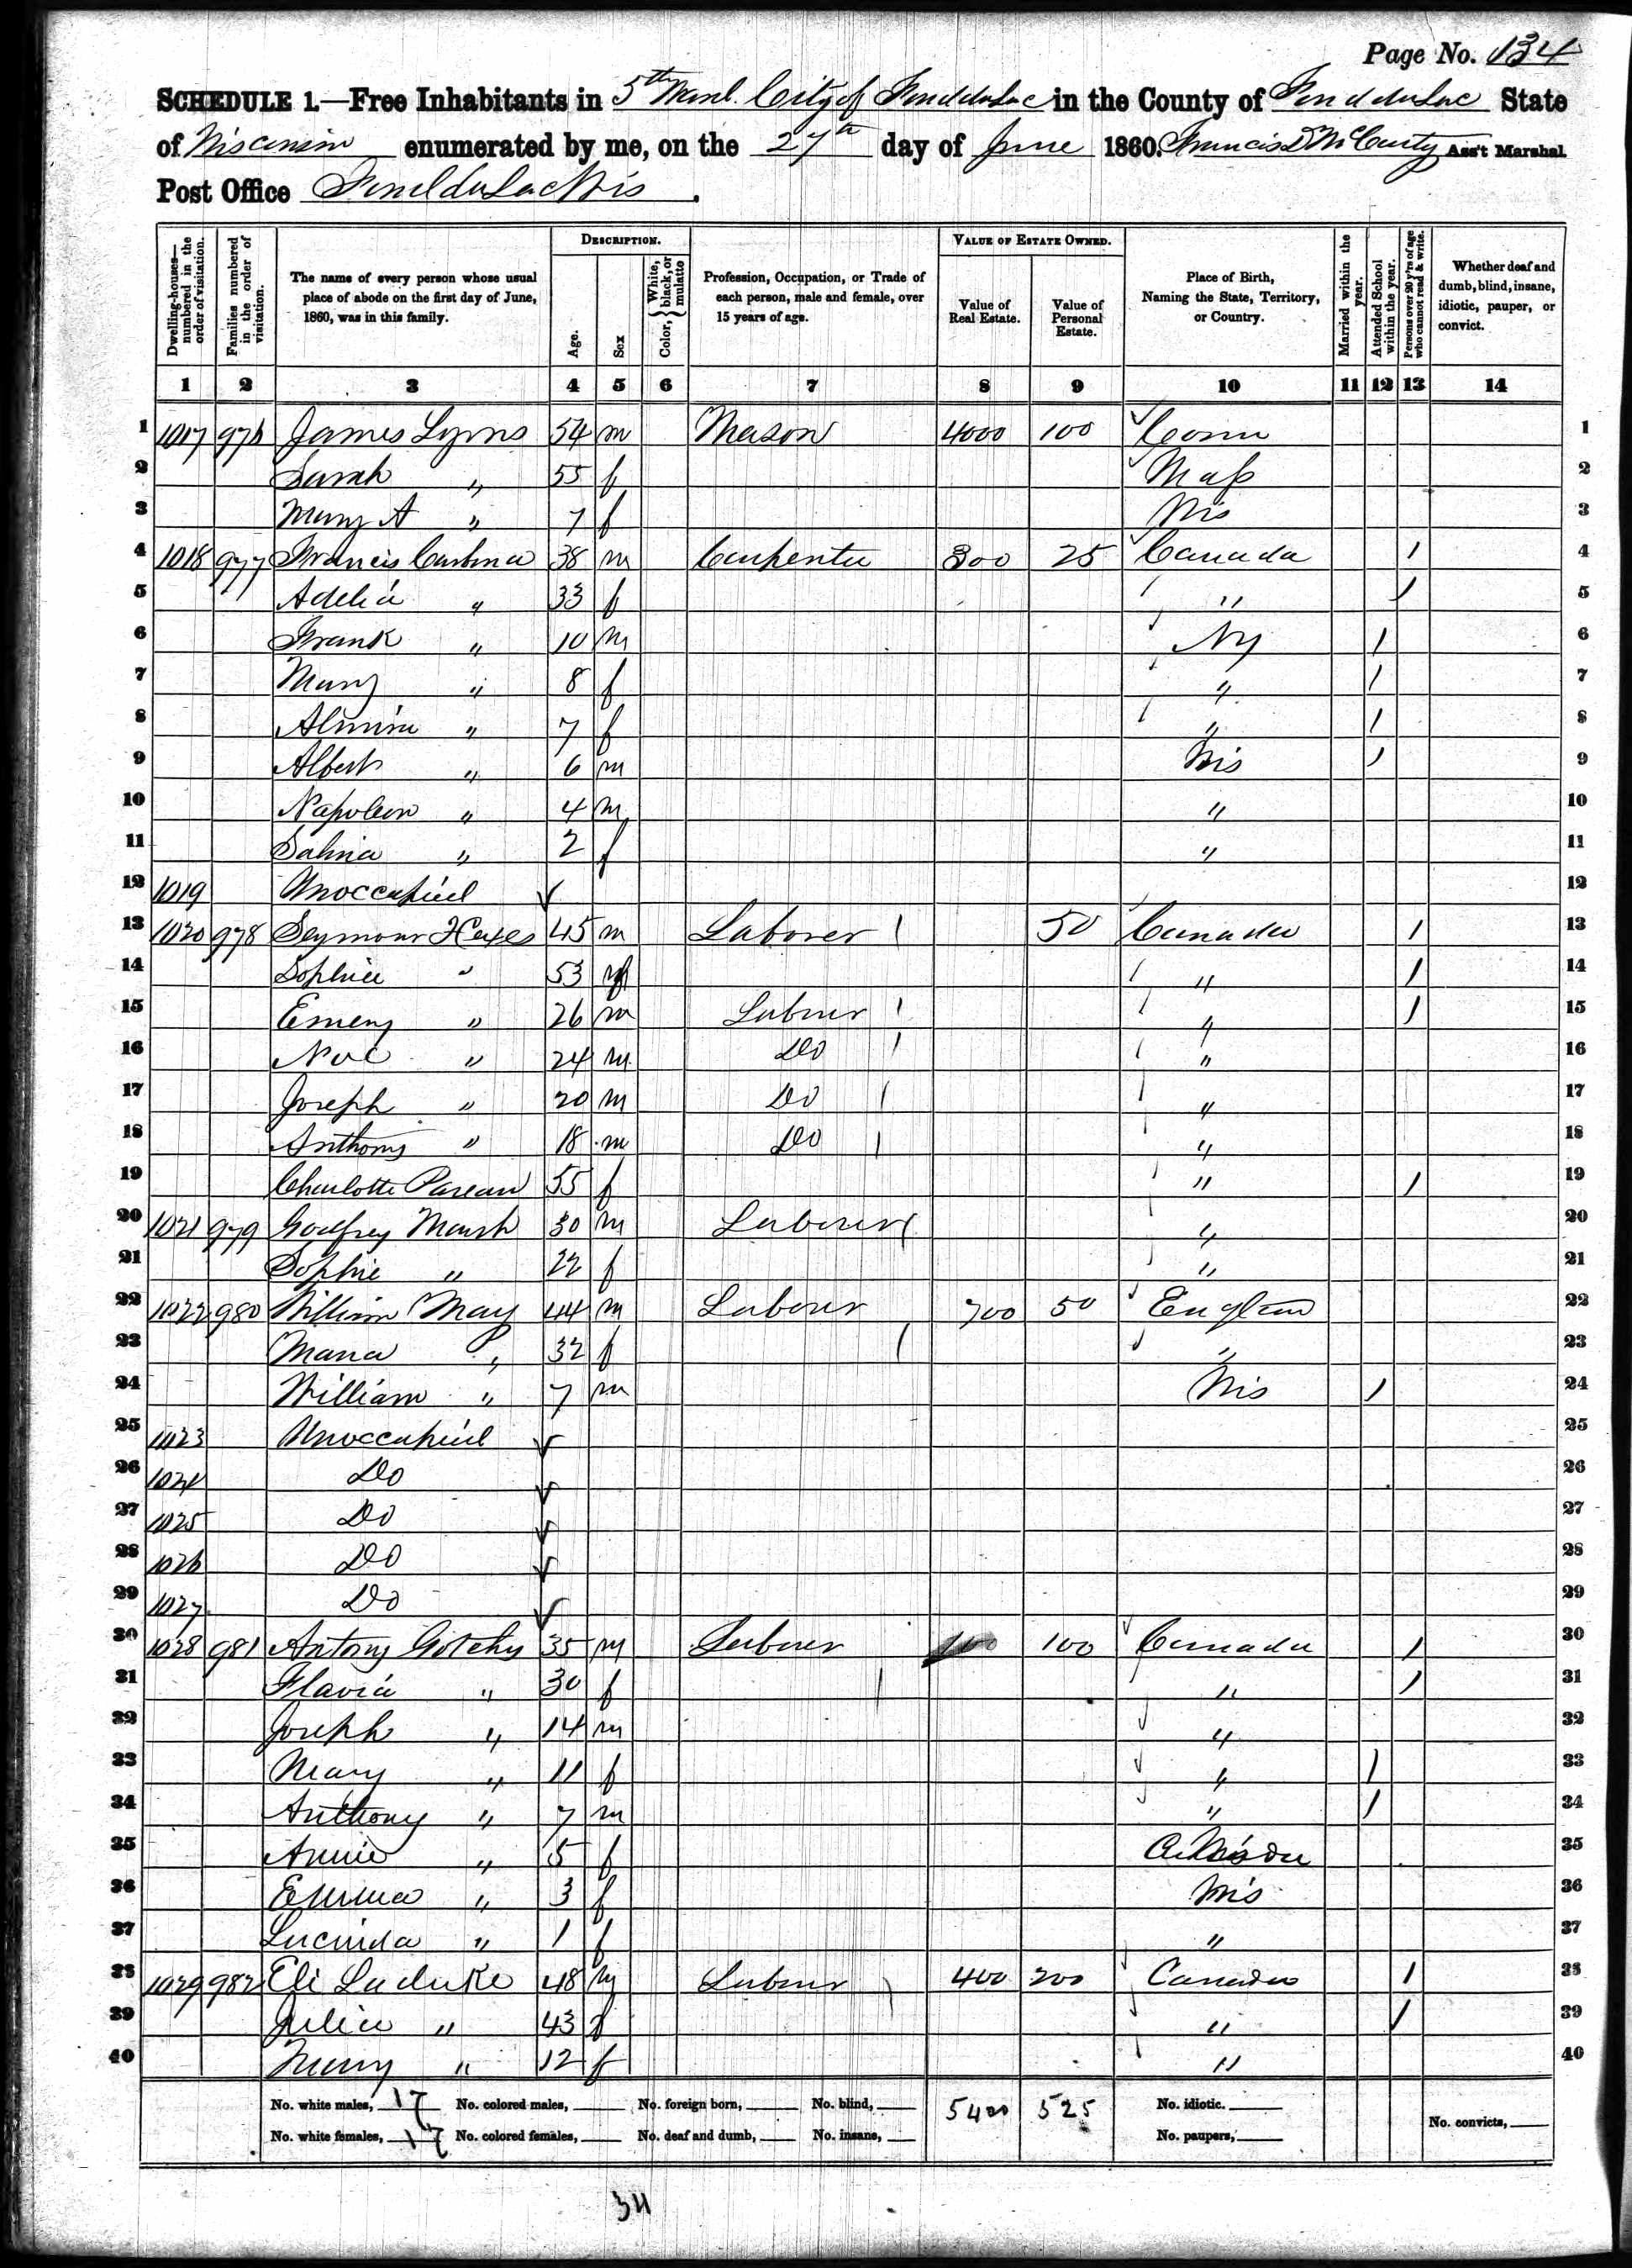 Page No. 134
SCHEDULE 1.—Free Inhabitants in 5th Ward City of Fond du Lac in the County of Fond du Lac State
of Wisconsin enumerated by me, on the 27th day of June 1860. Francis D McCarty Ass't Marshal
Post Office Fond du Lac Wis.
Dwelling-houses—numbered in the order of visitation.
Families numbered in the order of visitation.
The name of every person whose usual place of abode on the first day of June, 1860, was in this family.
DESCRIPTION.
Age.
Sex
Color, { White, black, or mulatto
Profession, Occupation, or Trade of each person, male and female, over 15 years of age.
VALUE OF ESTATE OWNED.
Value of Real Estate.
Value of Personal Estate.
Place of Birth, Naming the State, Territory, or Country.
Married within the year.
Attended School within the year.
Persons over 20 y'rs of age who cannot read & write.
Whether deaf and dumb, blind, insane, idiotic, pauper, or convict.
1 2 3 4 5 6 7 8 9 10 11 12 13 14
1 1017 976 James Lyons 54 m Mason 4000 100 Conn 1
2 Sarah " 55 f Mass 2
3 Mary A " 7 f Wis 3
4 1018 977 Francis 38 m Carpenter 300 25 Canada / 4
5 Adelia " 33 f " / 5
6 Frank " 10 m NY / 6
7 Mary " 8 f " / 7
8 Almira " 7 f " / 8
9 Albert " 6 m Wis / 9
10 Napoleon " 4 m " 10
11 Salina " 2 f " 11
12 1019 Unoccupied 12
13 1020 978 Seymour 45 m Laborer 50 Canada / 13
14 Sophia " 53 f " / 14
15 Emery " 26 m Laborer " / 15
16 " 24 m Do " 16
17 Joseph " 20 m Do " 17
18 Anthony " 18 m Do " 18
19 Charlotte 55 f " / 19
20 1021 979 Godfrey Marsh 30 m Laborer " 20
21 Sophie " 22 f " 21
22 1022 980 William May 44 m Laborer 700 50 England 22
23 Maria " 32 f " 23
24 William " 7 m Wis / 24
25 1023 Unoccupied 25
26 1024 Do 26
27 1025 Do 27
28 1026 Do 28
29 1027 Do 29
30 1028 981 Antony Gotchy 35 m Laborer 100 Canada / 30
31 Flavia " 30 f " / 31
32 Joseph " 14 m " 32
33 Mary " 11 f " / 33
34 Anthony " 7 m " / 34
35 Annie " 5 f 35
36 Emma " 3 f Wis 36
37 Lucinda " 1 f " 37
38 1029 982 Eli Laduke 48 m Laborer 400 200 Canada / 38
39 Julia " 43 f " / 39
40 Mary " 12 f " 40
No. white males, 17 No. colored males, No. foreign born, No. blind, 5400 525 No. idiotic.
No. white females, 17 No. colored females, No. deaf and dumb, No. insane, No. paupers, No. convicts,
34